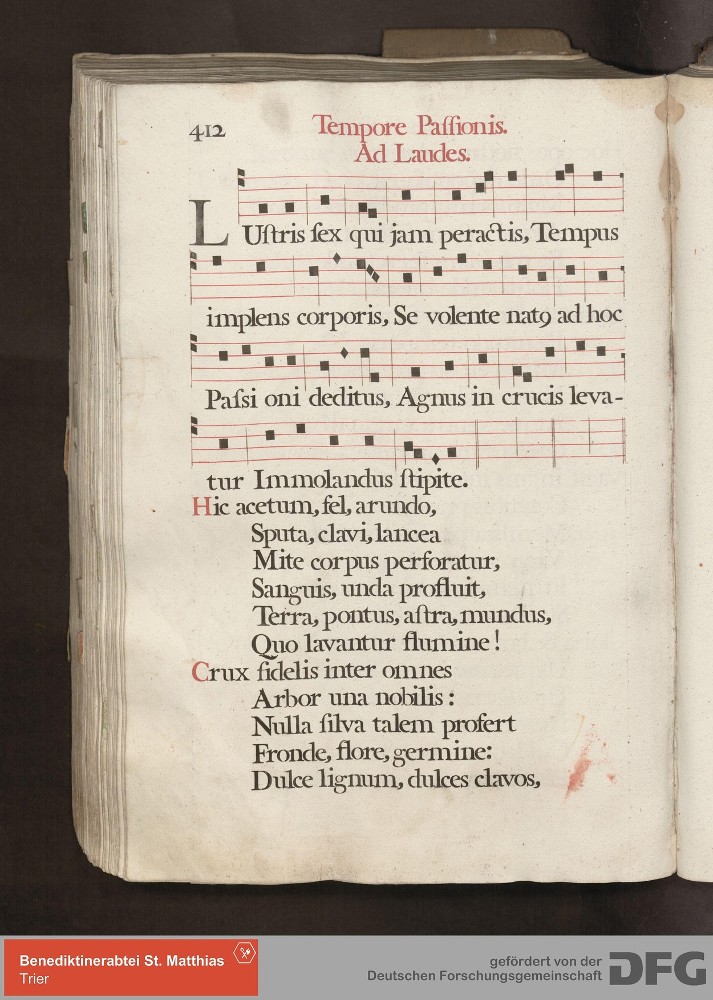 412
Tempore Paſſionis.
Ad Laudes.
LUſtris ſex qui jam peractis, Tempus
implens corporis, Se volente natꝯ ad hoc
Paſsi oni deditus, Agnus in crucis leva-
tur Immolandus ſtipite.
Hic acetum, fel, arundo,
Sputa, clavi, lancea
Mite corpus perforatur,
Sanguis, unda profluit,
Terra, pontus, aſtra, mundus,
Quo lavantur flumine!
Crux fidelis inter omnes
Arbor una nobilis:
Nulla ſilva talem profert
Fronde, flore, germine:
Dulce lignum, dulces clavos,
Benediktinerabtei St. Matthias
Trier
gefördert von der
Deutschen Forschungsgemeinschaft
DFG